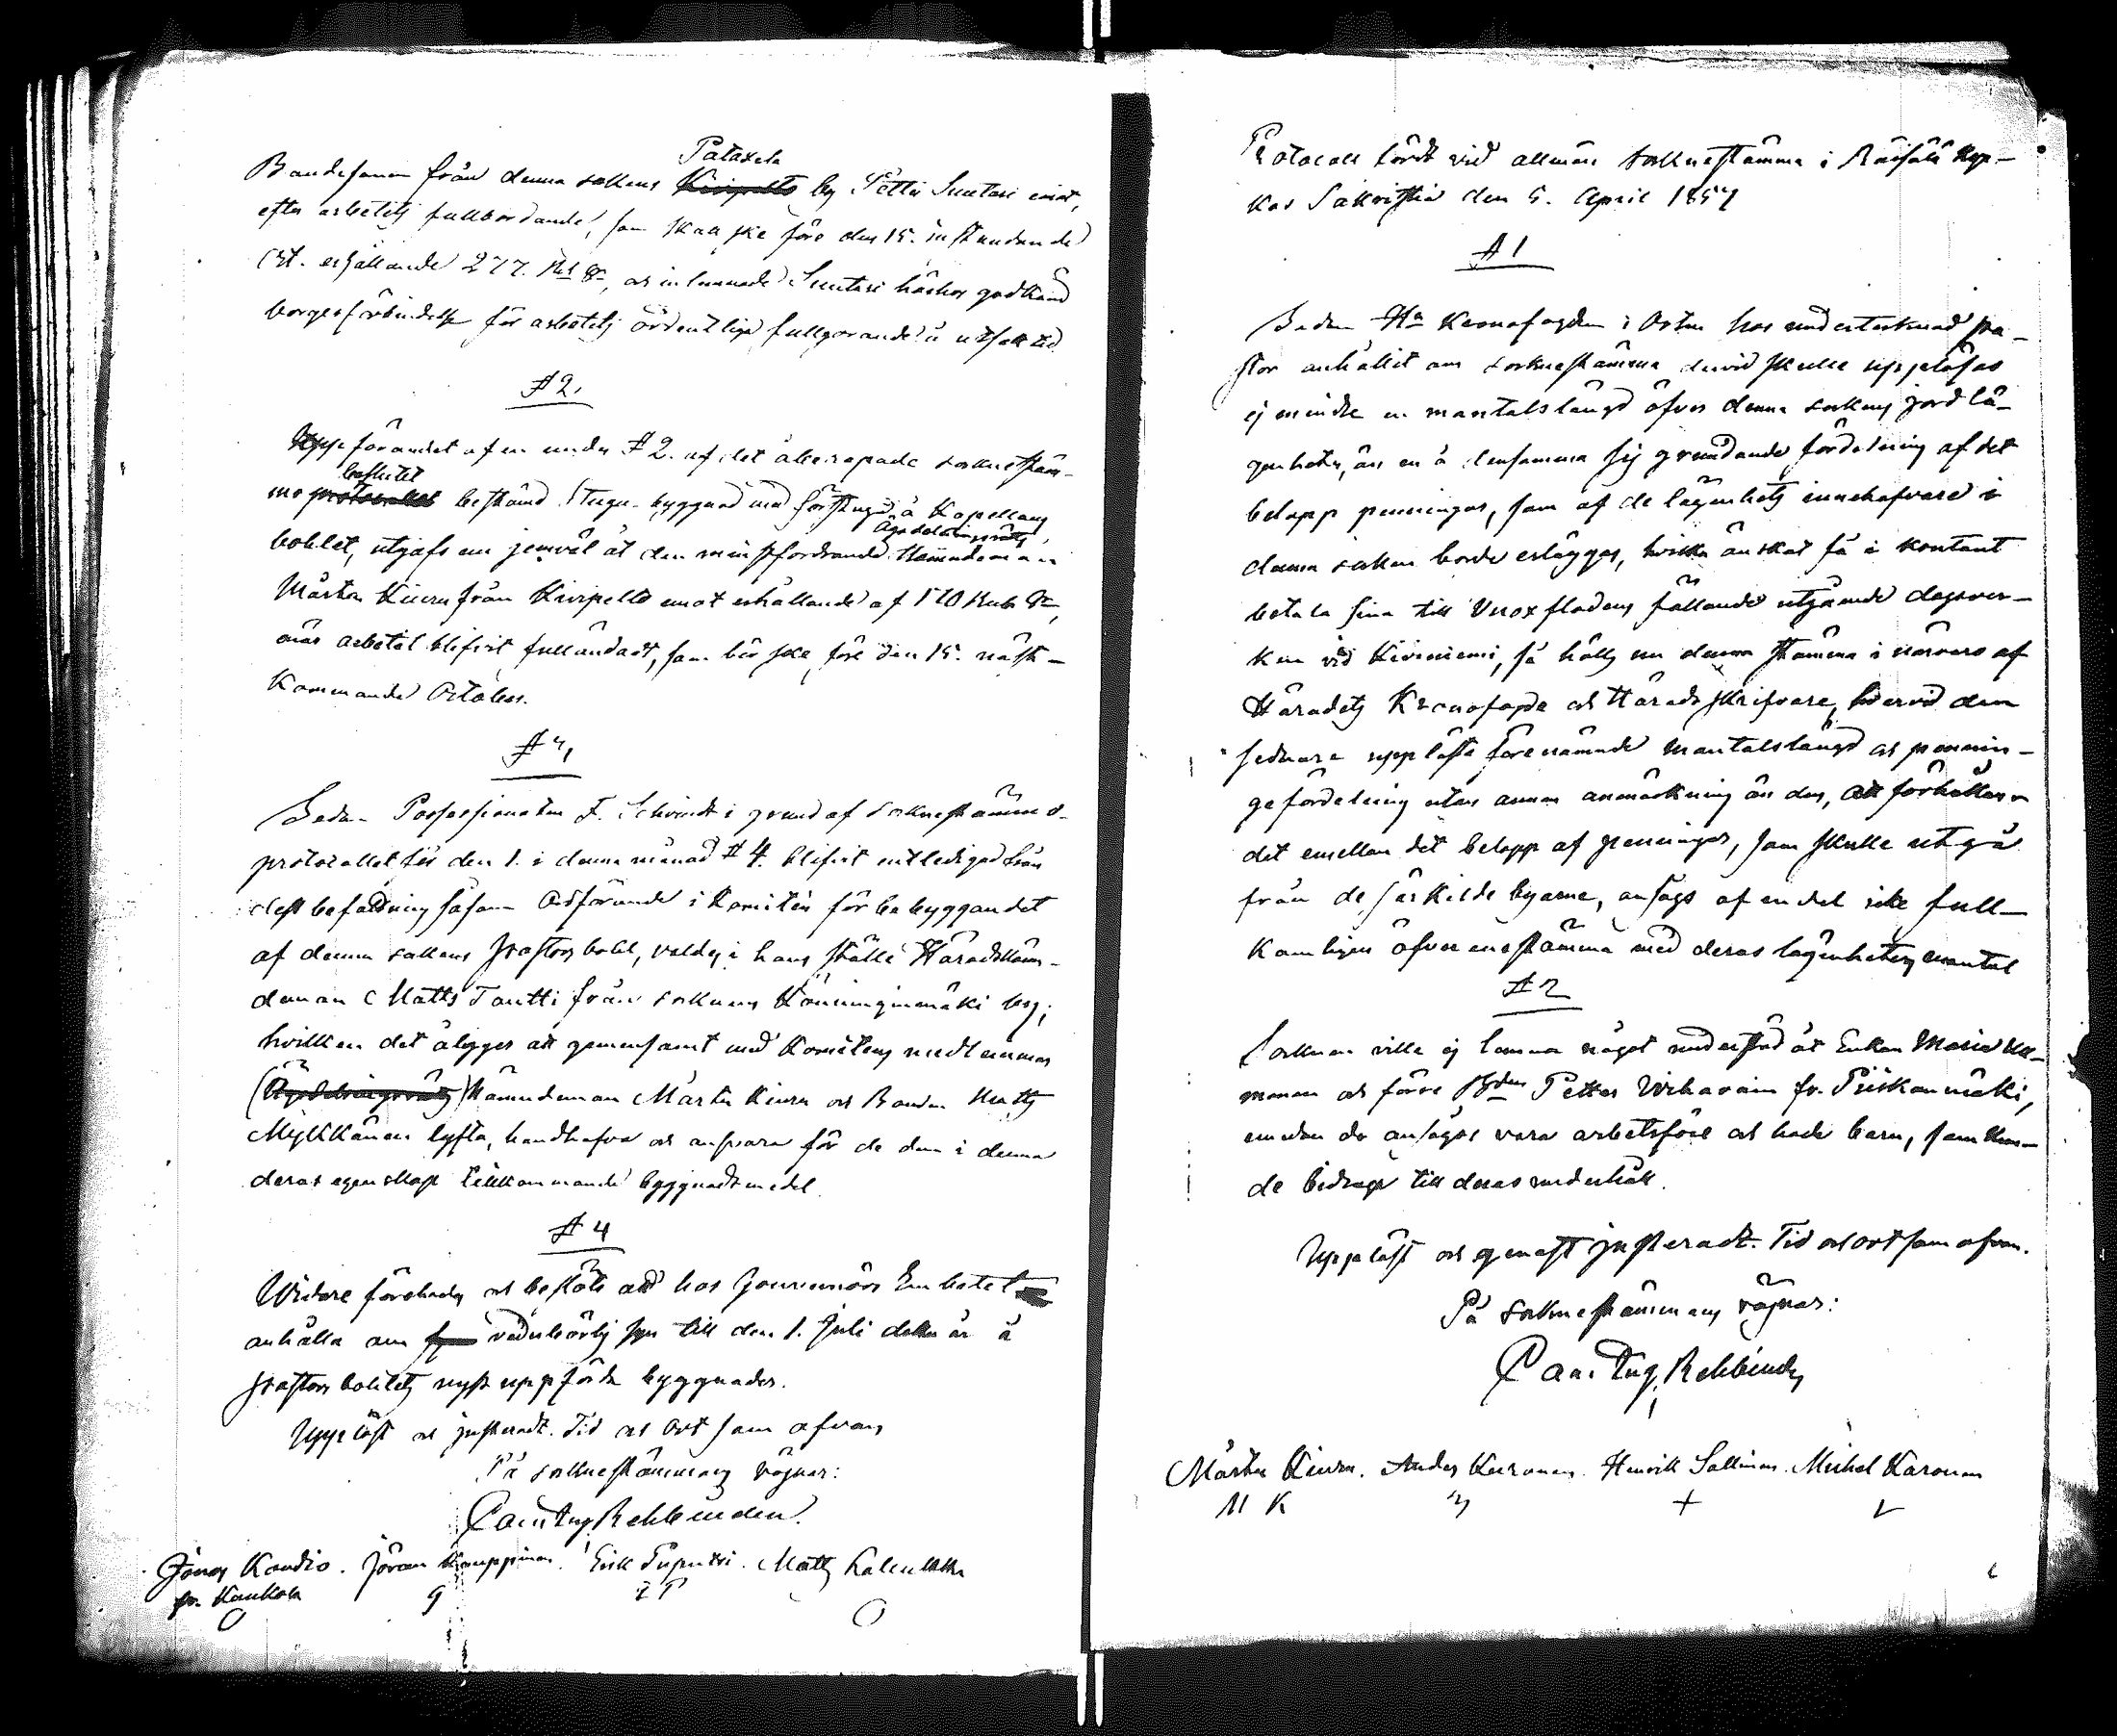 Bondesonen från denna sockens Pataxela by Petter Suutari emot,
efter arbetets fullbordande, som skall ske före den 15. instundande
Oct. erhållande 277. Rub Sr, och inlemnade Suutari härhos godkänd
borgesförbindelse för arbetets ordentliga fullgörande å utsatt tid.
§ 2.
Uppförandet af en under § 2. af det åberopade sockenstäm-
mo beslutet bestämd stugu-byggnad med förstuga å Kapellans
bohlet, utgafs nu jemväl åt den minstfordrande Ägodelningsrätts Nämndeman
Mårten Kiuru från Kiripelto emot erhållande af 170 Rub Sr,
när arbetet blifvit fulländadt, som bör ske före den 15. näst-
kommande October.
§ 3,
Sedan Possessionaten F. Schvindt i grund af sockenstämmo-
protocollet för den 1. i denna månad § 4. blifvit entledigad från
dess befattning såsom Ordförande i Komitén för bebyggandet
af denna sockens Pastors bohl, valdes i hans ställe Häradsnämn-
deman Matts Tantti från socknens Könninginmäki by;
hvilken det åligger att gemensamt med Komitens medlemmar
Nämndeman Mårten Kiuru och Bonden Matts
Mylkkänen lyfta, handhafva och ansvara för de dem i denna
deras egenskap tillkommande byggnadsmedel.
§ 4
Widare förehades och beslöts att hos Gouvernörs Embetet
anhålla om vederbörlig syn till den 1. Juli detta år å
Pastors bohlets nyss uppförda byggnader.
Uppläst och justeradt. Tid och Ort som ofvan
På sockenstämmans vägnar:
Rehbinder.
Jönas Kandio. Jöran Kauppinen. Erik Pupутti. Matts
fr. Kaukola
g
E P
O
Protocoll fördt vid allmän sockenstämma i Räisälä kyr-
kas Sakristia den 5. April 1857
§ 1
Sedan Hr Kronofogden i Orten hos undertecknad pa-
stor anhållit om sockenstämma dervid skulle uppläsas
ej mindre en mantalslängd öfver denna sockens jordlä-
genheter, än en å densamma sig grundande fördelning af det
belopp penningar, som af de lägenhets innehafvare i
denna socken borde erläggas, hvilka önskat få i kontant
betala sina till Vuoxflodens fällande utgående dagsver-
ken vid Kiviniemi, så hölls nu denna stämma i närvaro af
Häradets Kronofogde och Häradsskrifvare, hvarvid den
sednare uppläste förenämnde mantalslängd och pennin-
gefördelning utan annan anmärkning än den, att förhållan-
det emellan det belopp af penningar, som skulle utgå
från de särskilde byarne, ansågs af en del icke full-
komligen öfverensstämma med deras lägenheters mantal
§ 2
Socknen ville ej lemna något understöd åt Enkan Maria
och förre Petter fr. Piiskanmäki,
emedan de ansågos vara arbetsföre och hade barn, som kun-
de bidraga till deras underhåll.
Uppläst och genast justeradt. Tid och ort som ofvan.
På sockenstämmans vägnar:
Rehbinder
Mårten Kiuru. Anders Kuronen. Henrik Sallinen. Michel Karonen
M K
+